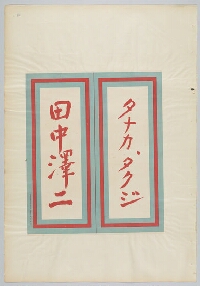 タナカ、タクジ
田中澤二